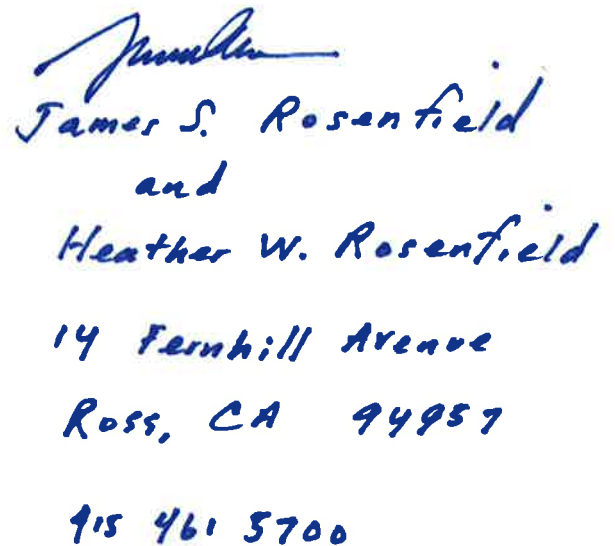 James S. Rosenfield
and
Heather W. Rosenfield
14 Fernhill Avenue
Ross, CA 94957
415 461 5700